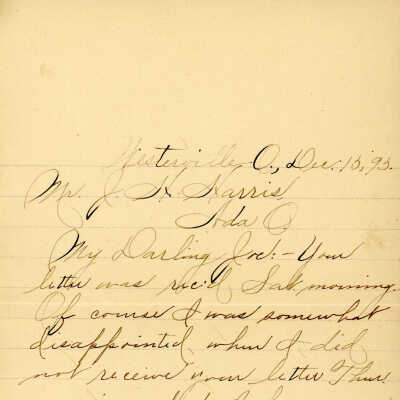 Westerville, O., Dec. 15, 93.
Mr. J. H. Harris
Ada O.
My Darling Joe:- Your
letter was rec'd Sat. morning.
Of course I was somewhat
disappointed when I did
not receive your letter Thur.